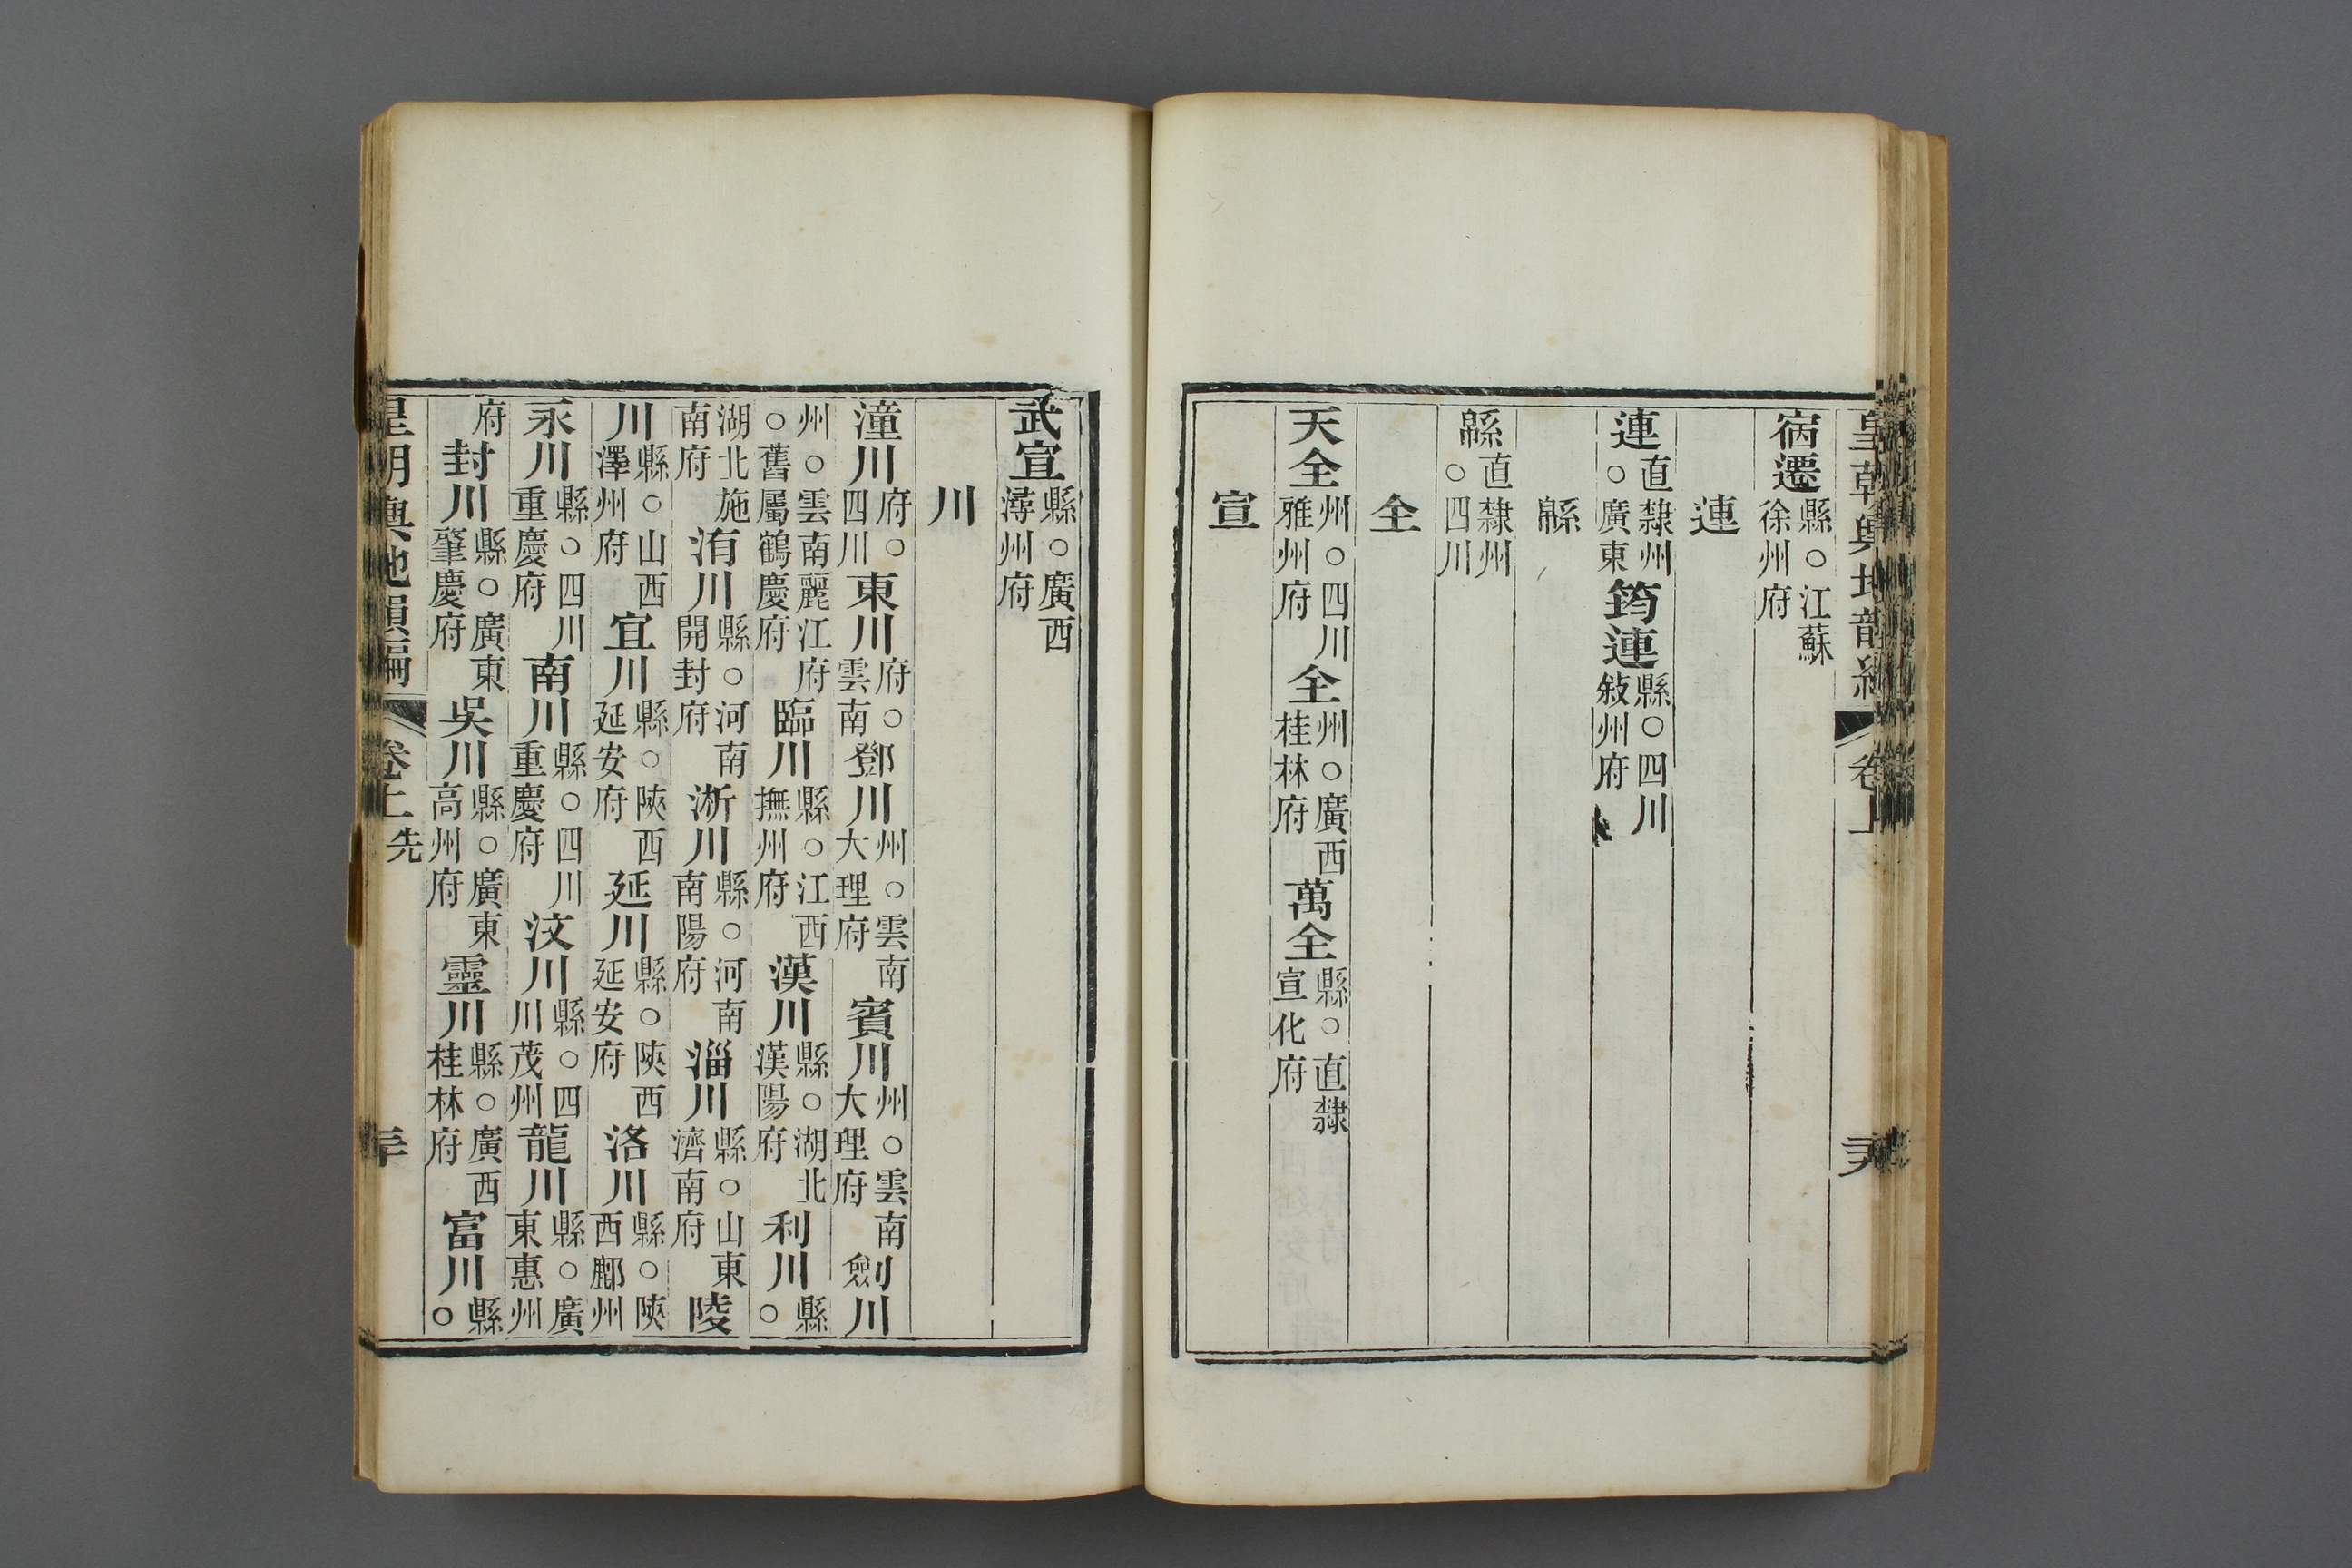 皇朝輿地韻編 卷上
宿遷縣○江蘇徐州府
連
連直隸州○廣東筠連縣○四川敍州府
緜
緜直隸州○四川
全
天全州○四川雅州府全州○廣西桂林府萬全縣○直隸宣化府
宣
武宣縣○廣西潯州府
川
潼川府○四川東川府○雲南鄧川州○雲南大理府賓川州○雲南大理府劍川
州○雲南麗江府○舊屬鶴慶府臨川縣○江西撫州府漢川縣○湖北漢陽府利川縣○
湖北施南府洧川縣○河南開封府淅川縣○河南南陽府淄川縣○山東濟南府陵
川縣○山西澤州府宜川縣○陝西延安府延川縣○陝西延安府洛川縣○陝西鄜州
永川縣○四川重慶府南川縣○四川重慶府汶川縣○四川茂州龍川縣○廣東惠州
府封川縣○廣東肇慶府吳川縣○廣東高州府靈川縣○廣西桂林府富川縣○
皇朝輿地韻編 卷上 先